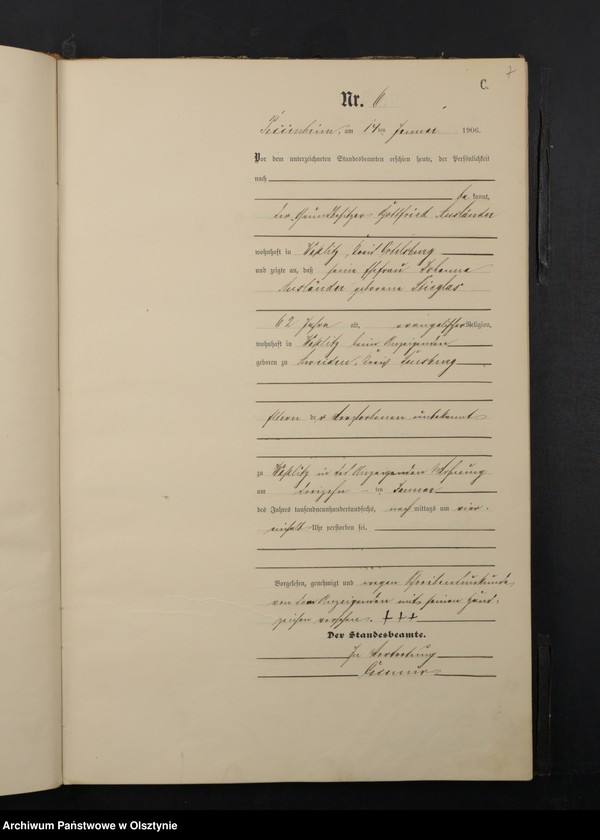 7
C.
Nr. 6
am 14ten Januar 1906.
Vor dem unterzeichneten Standesbeamten erschien heute, der Persönlichkeit
nach
be kannt,
der Grundbesitzer Gottfried Ausländer
wohnhaft in Kreis Ortelsburg
und zeigte an, daß seine Ehefrau Johanna
Ausländer geborene
62 Jahre alt, evangelischer Religion,
wohnhaft in beim Anzeigenden
geboren zu Kreis Sensburg
Eltern der Verstorbenen unbekannt
zu in des Anzeigenden Wohnung
am dreizehn ten Januar
des Jahres tausendneunhundertundsechs, nach mittags um vier
einhalb Uhr verstorben sei.
Vorgelesen, genehmigt und wegen Schreibensunkunde
von dem Anzeigenden mit seinen Hand-
zeichen versehen. +++
Der Standesbeamte.
In Vertretung
Archiwum Państwowe w Olsztynie